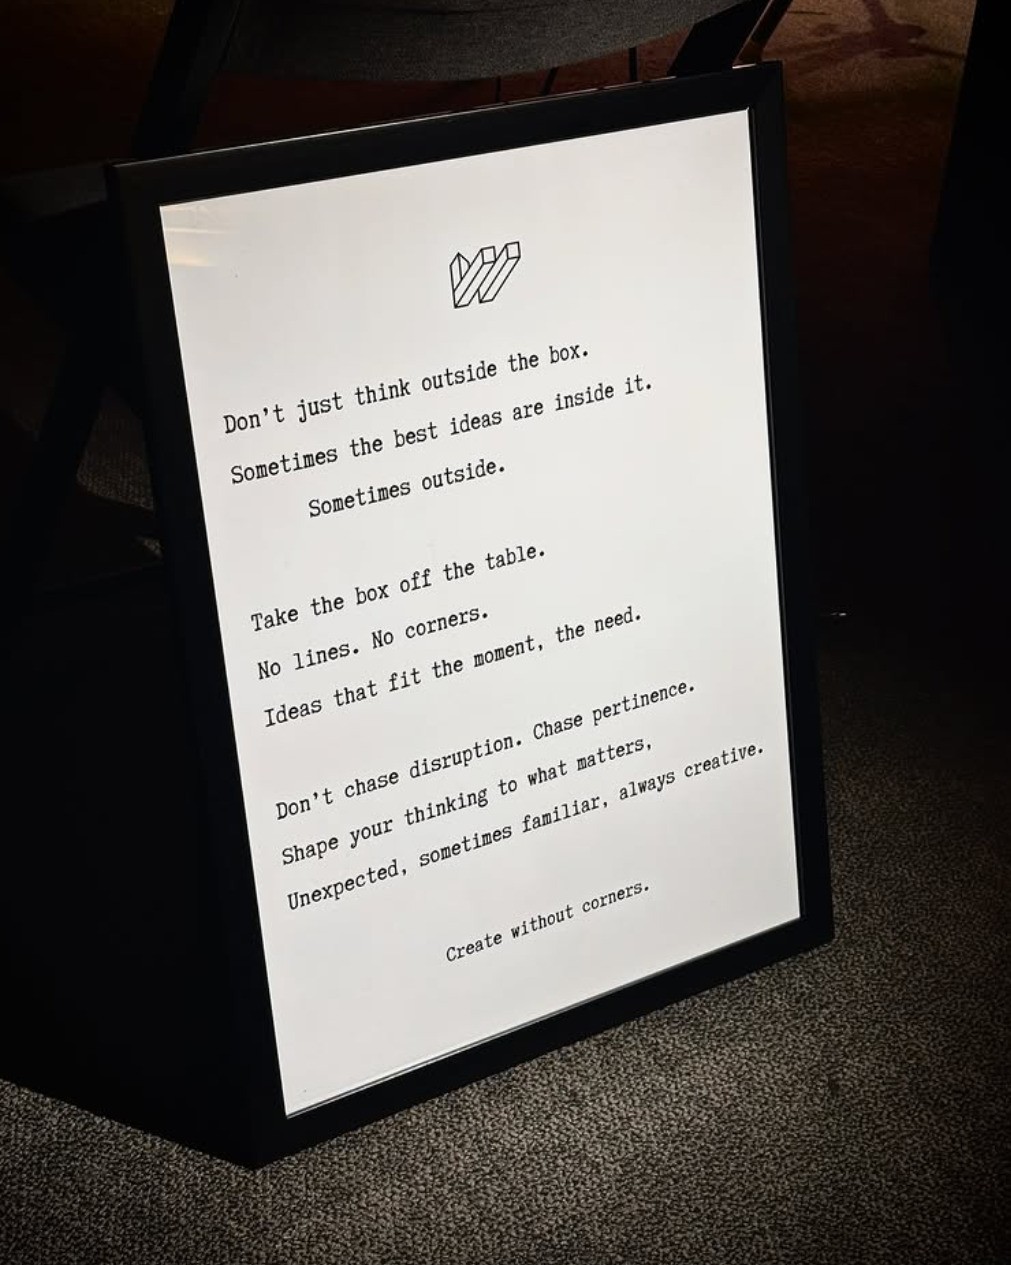 Don't just think outside the box.
Sometimes the best ideas are inside it.
Sometimes outside.
Take the box off the table.
No lines. No corners.
Ideas that fit the moment, the need.
Don't chase disruption. Chase pertinence.
Shape your thinking to what matters,
Unexpected, sometimes familiar, always creative.
Create without corners.